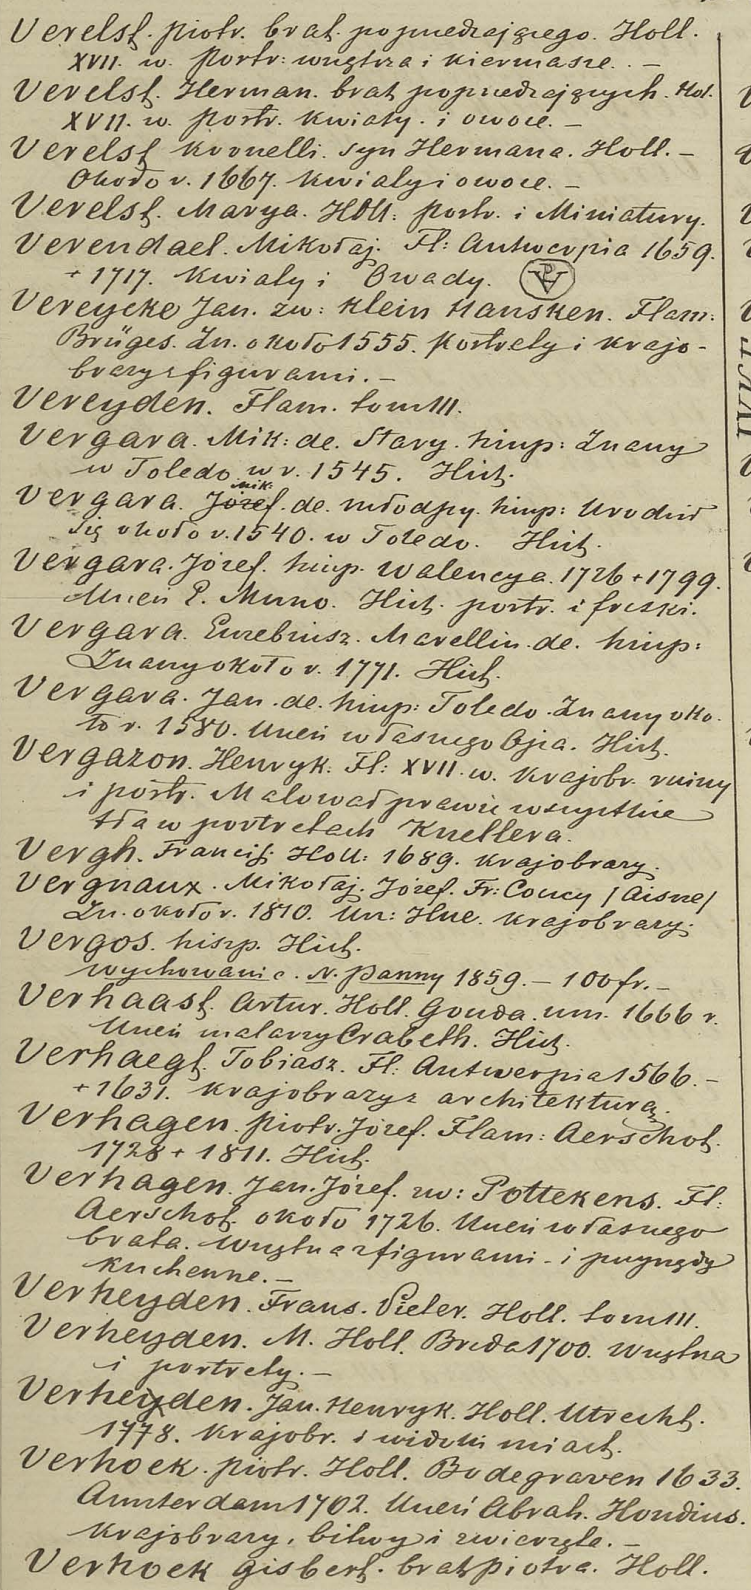 Verelst. Piotr. brat. poprzedzającego. Holl.
XVII. w. Portr: wnętrza i kiermasze. –
Verelst. Herman. brat poprzedzających. Hol.
XVII. w. Portr. Kwiaty. i owoce. –
Verelst Kornelli. syn Hermana. Holl. –
Około r. 1667. Kwiaty i owoce. –
Verelst. Marya. Holl: Portr. i Miniatury.
Verendael. Mikołaj. Fl: Antwerpia 1659.
+ 1717. Kwiaty i Owady.
Vereycke Jan. zw: Klein Hansken. Flam:
Brüges. Zn. około 1555. Portrety i krajo-
brazy z figurami. –
Vereyden. Flam. tom III.
Vergara. Mik: de. Stary. hiszp: Znany
w Toledo w r. 1545. Hist.
Vergara. Józef. Mik. de. młodszy. hiszp: Urodził
się około r. 1540. w Toledo. Hist.
Vergara. Józef. hiszp. Walencya. 1726 + 1799.
Uczeń E. Muno. Hist. portr. i freski.
Vergara. Euzebiusz. Marellin. de. hiszp:
Znany około r. 1771. Hist.
Vergara. Jan. de. hiszp: Toledo. Znany oko-
ło r. 1580. Uczeń własnego Ojca. Hist.
Vergazon. Henryk. Fl: XVII. w. Krajobr. ruiny
i portr. Malował prawie wszystkie
tła w portretach Knellera.
Vergh. Francis. Holl: 1689. Krajobrazy.
Vergnaux. Mikołaj. Józef. Fr: Coucy /Aisne/
Zn. około r. 1810. Ucz: Hue. Krajobrazy.
Vergos. hiszp. Hist.
wychowanie. N. Panny 1859. – 100 fr. –
Verhaast. Artur. Holl. Gouda. um. 1666 r.
Uczeń malarzy Crabeth. Hist.
Verhaegt. Tobiasz. Fl: Antwerpia 1566. –
+ 1631. Krajobrazy z architekturą.
Verhagen. Piotr. Józef. Flam: Aerschot.
1728 + 1811. Hist.
Verhagen. Jan. Józef. zw: Pottekens. Fl:
Aerschot. około 1726. Uczeń własnego
brata. Wnętrza z figurami. i przyrządy
kuchenne. –
Verheyden. Frans. Pieter. Holl. tom III.
Verheyden. M. Holl. Breda 1700. Wnętrza
i portrety. –
Verheyden. Jan. Henryk. Holl. Utrecht.
1778. Krajobr. i widoki miast.
Verhoek. Piotr. Holl. Bodegraven 1633.
Amsterdam 1702. Uczeń Abrah. Hondius.
Krajobrazy, bitwy i zwierzęta. –
Verhoek gisbert. brat Piotra. Holl.